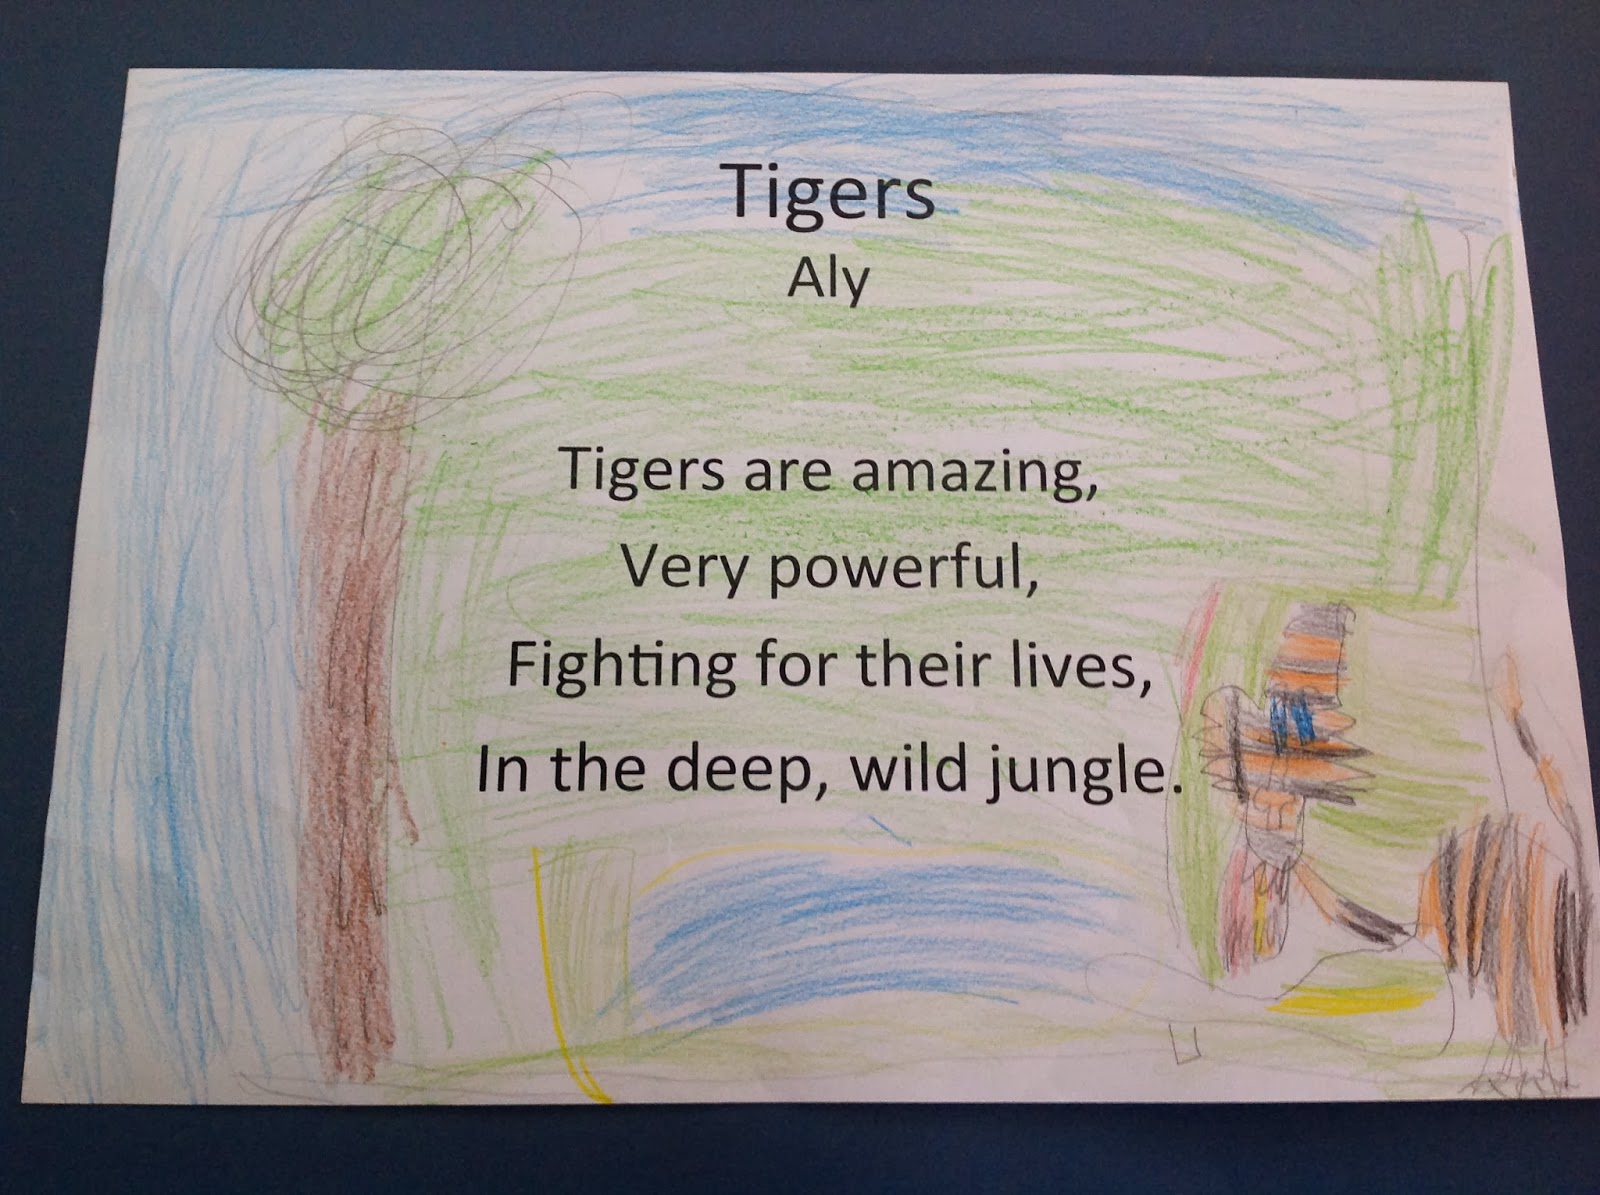 Tigers
Aly
Tigers are amazing,
Very powerful,
Fighting for their lives,
In the deep, wild jungle.